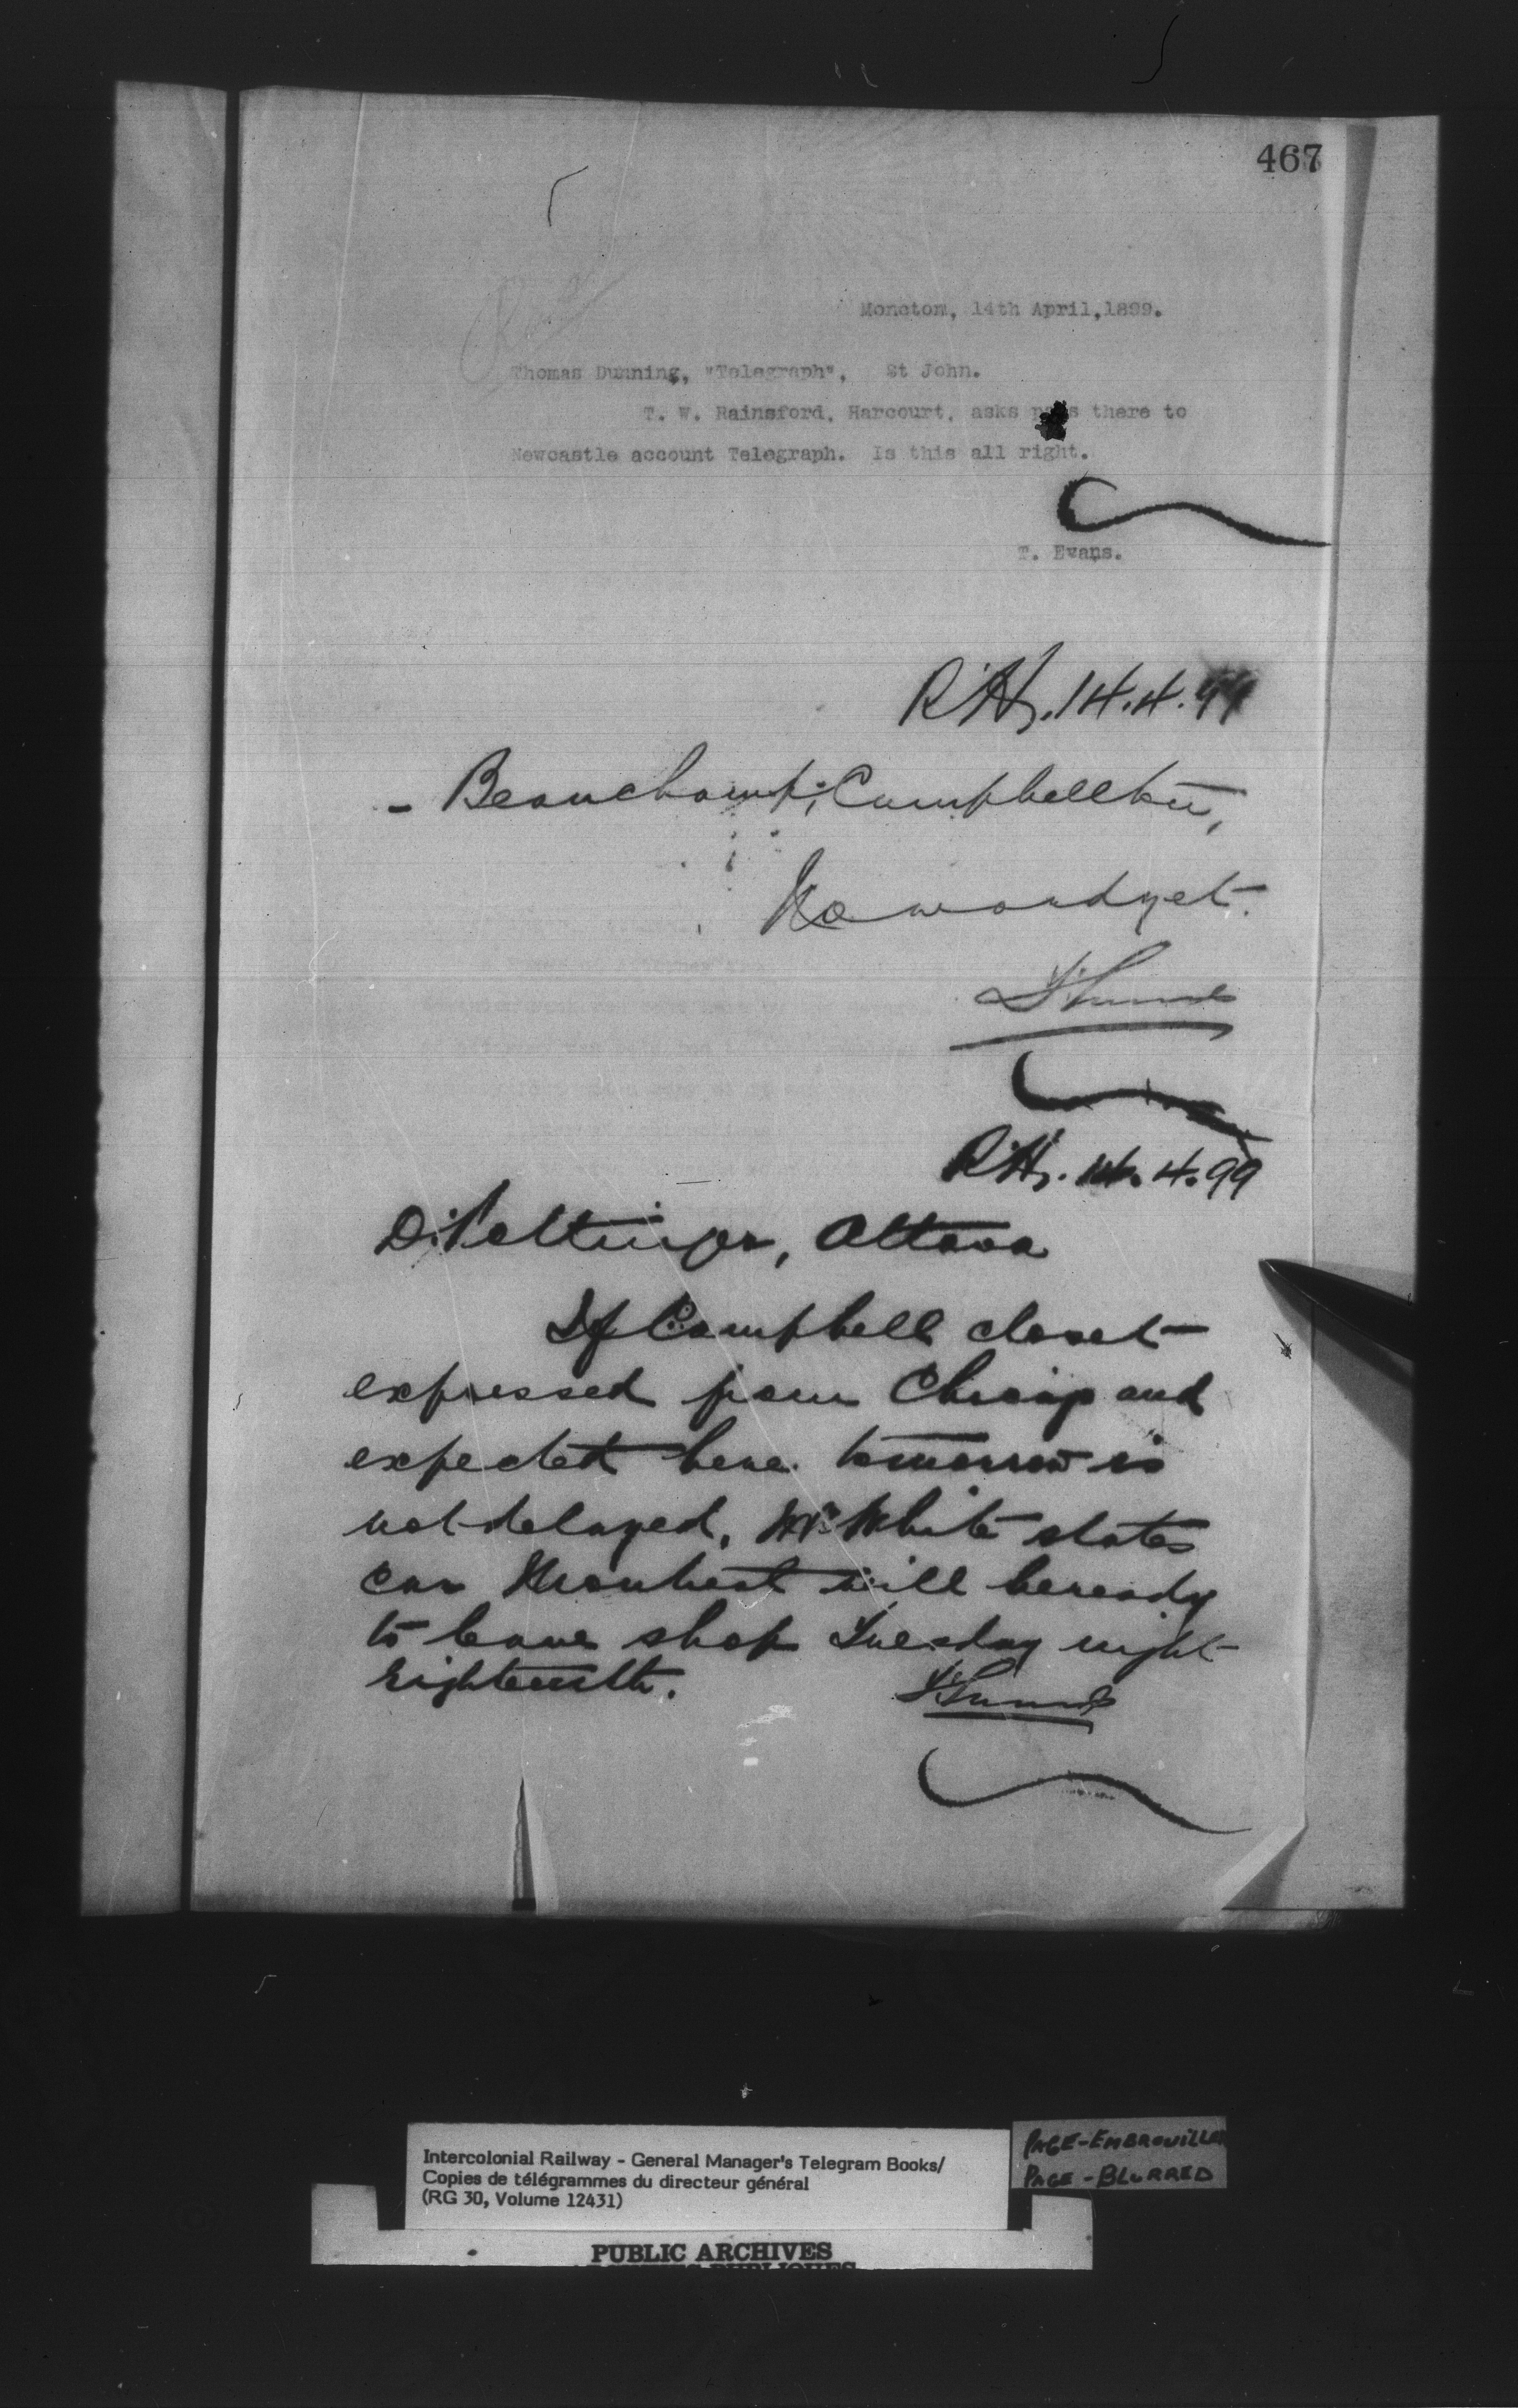 467
Moncton, 14th April, 1899.
Thomas Dunning, "Telegraph", St John.
T. W. Rainsford, Harcourt, asks pass there to
Newcastle account Telegraph. Is this all right.
T. Evans.
14.4.99
- Beauchamp, Campbellton,
No word yet.
14.4.99
D. Pottinger, Ottawa
If Campbell closet
expressed from Chicago and
expected here tomorrow is
not delayed, Mr White states
car Montreal will be ready
to leave shop Tuesday night
eighteenth.
Intercolonial Railway - General Manager's Telegram Books/
Copies de télégrammes du directeur général
(RG 30, Volume 12431)
PAGE-EMBROUILLEE
PAGE-BLURRED
PUBLIC ARCHIVES